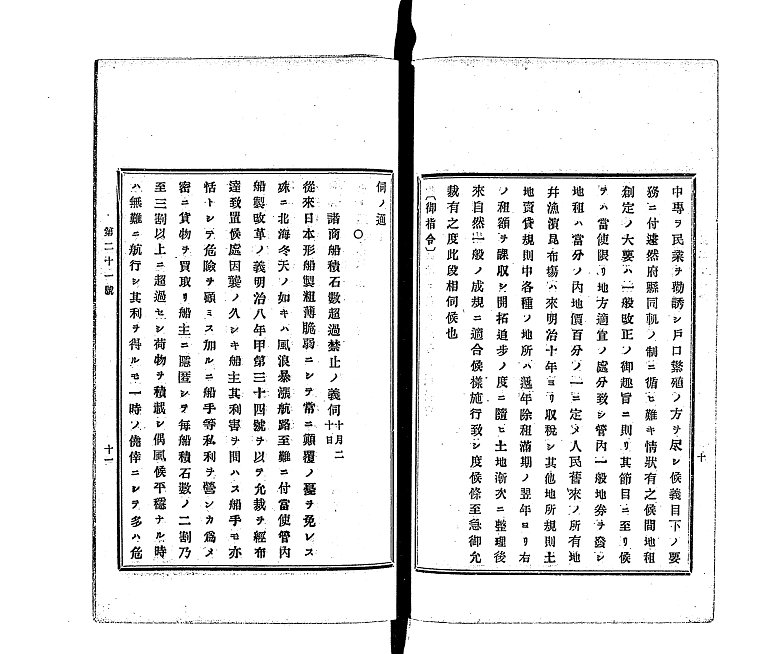 中專ヲ民業ヲ勸誘シ戸口繁殖ノ方ヲ尽シ候義目下ノ要
務ニ付遽然府縣同軌ノ制ニ循ヒ難キ情狀有之候間地租
創定ノ大要ハ一般改正ノ御趣旨ニ則リ其節目ニ至リ候
ヲハ當使限リ地方適宜ノ處分致シ管内一般地券ヲ發シ
地租ハ當分ノ内地價百分ノ一ニ定メ人民舊來ノ所有地
幷漁濱昆布塲ハ來明治十年ヨリ取税シ其他地所規則土
地賣貸規則中各種ノ地所ハ逐年除租滿期ノ翌年ヨリ右
ノ租額ヲ課收シ開拓進步ノ度ニ隨ヒ土地漸次ニ整理後
來自然一般ノ成規ニ適合候樣施行致シ度候條至急御允
裁有之度此段相伺候也
〔御指令〕
十
伺ノ通
〇
諸商船積石數超過禁止ノ義伺十月二十日
從來日本形船製粗薄脆弱ニシテ常ニ顚覆ノ憂ヲ免レス
殊ニ北海冬天ノ如キハ風浪暴漲航路至難ニ付當使管内
船製改革ノ義明治八年甲第三十四號ヲ以テ允裁ヲ經布
達致置候處因襲ノ久シキ船主其利害ヲ問ハス船手モ亦
恬トシテ危險ヲ顧ミス加ルニ船手等私利ヲ營シカ爲メ
密ニ貨物ヲ買取リ船主ニ隱匿シテ每船積石數ノ二割乃
至三割以上ニ超過セシ荷物ヲ積載シ偶風候平穩ナル時
ハ無難ニ航行シ其利ヲ得ルモ一時ノ僥倖ニシテ多ハ危
第二十一號
十一